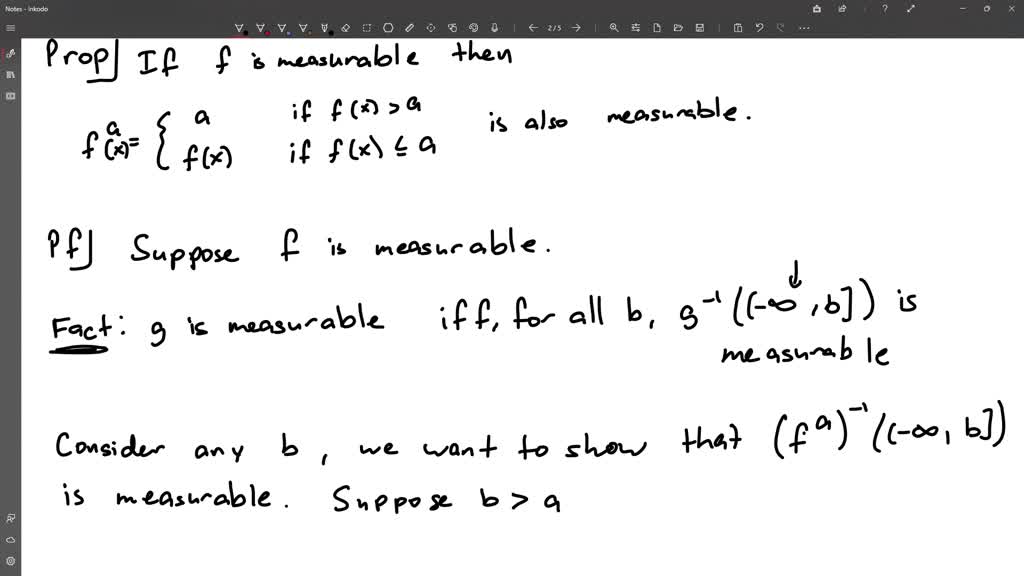 Notes - Inkodo
2/5
Prop] If f is measurable then
fᵃ(x) = { a if f(x) > a
f(x) if f(x) ≤ a
is also measurable.
Pf] Suppose f is measurable.
Fact: g is measurable iff, for all b, g⁻¹((-∞, b]) is
measurable
Consider any b, we want to show that (fᵃ)⁻¹((-∞, b])
is measurable. Suppose b > a